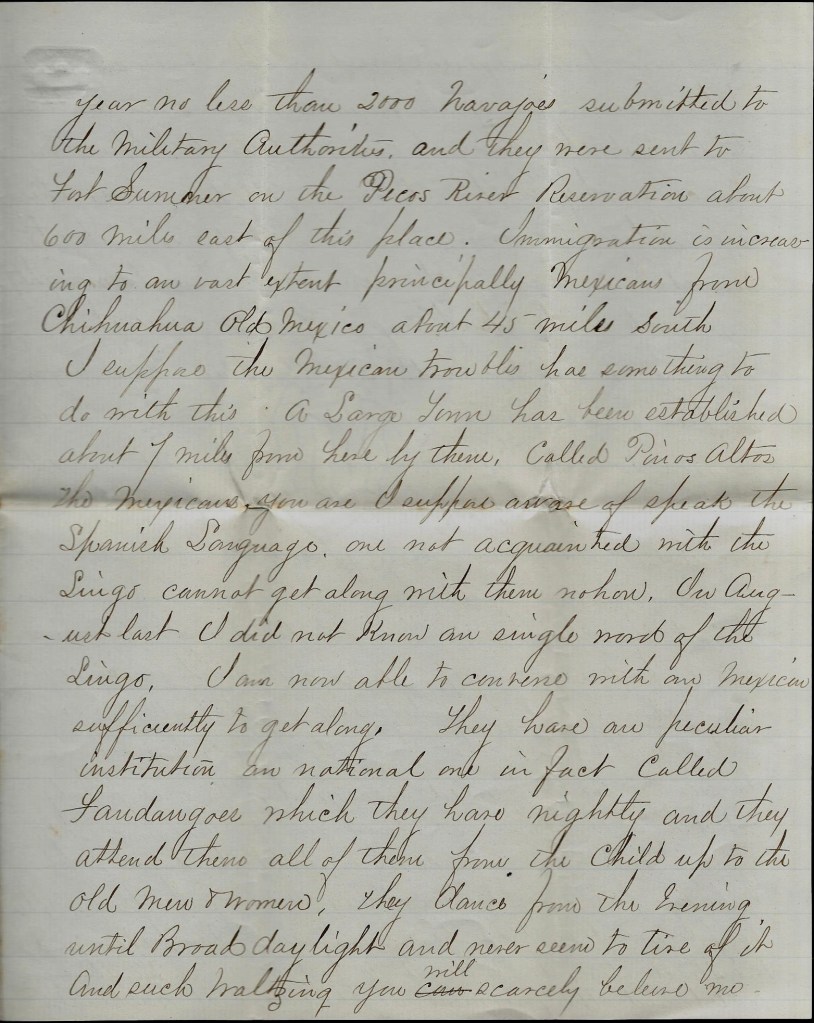 year no less than 2000 Navajoes submitted to
the Military Authorities. and they were sent to
Fort Sumner on the Pecos River Reservation about
600 miles east of this place. Immigration is increas
ing to an vast extent principally Mexicans from
Chihuahua Old Mexico about 45 miles South
I suppose the Mexican troubles has something to
do with this. A Large Town has been established
about 7 miles from here by them, Called Pinos Altos
The Mexicans, you are I suppose aware of speak the
Spanish Language. one not acquainted with the
Lingo cannot get along with them nohow. In Aug-
-ust last I did not Know an single word of the
Lingo. I am now able to converse with an Mexican
sufficiently to get along. They have an peculiar
institution an national one in fact Called
Fandangoes which they have nightly and they
attend them all of them from the Child up to the
old Men & Women, They dance from the Evening
until Broad daylight and never seem to tire of it
And such Waltzing you will scarcely beleive me-